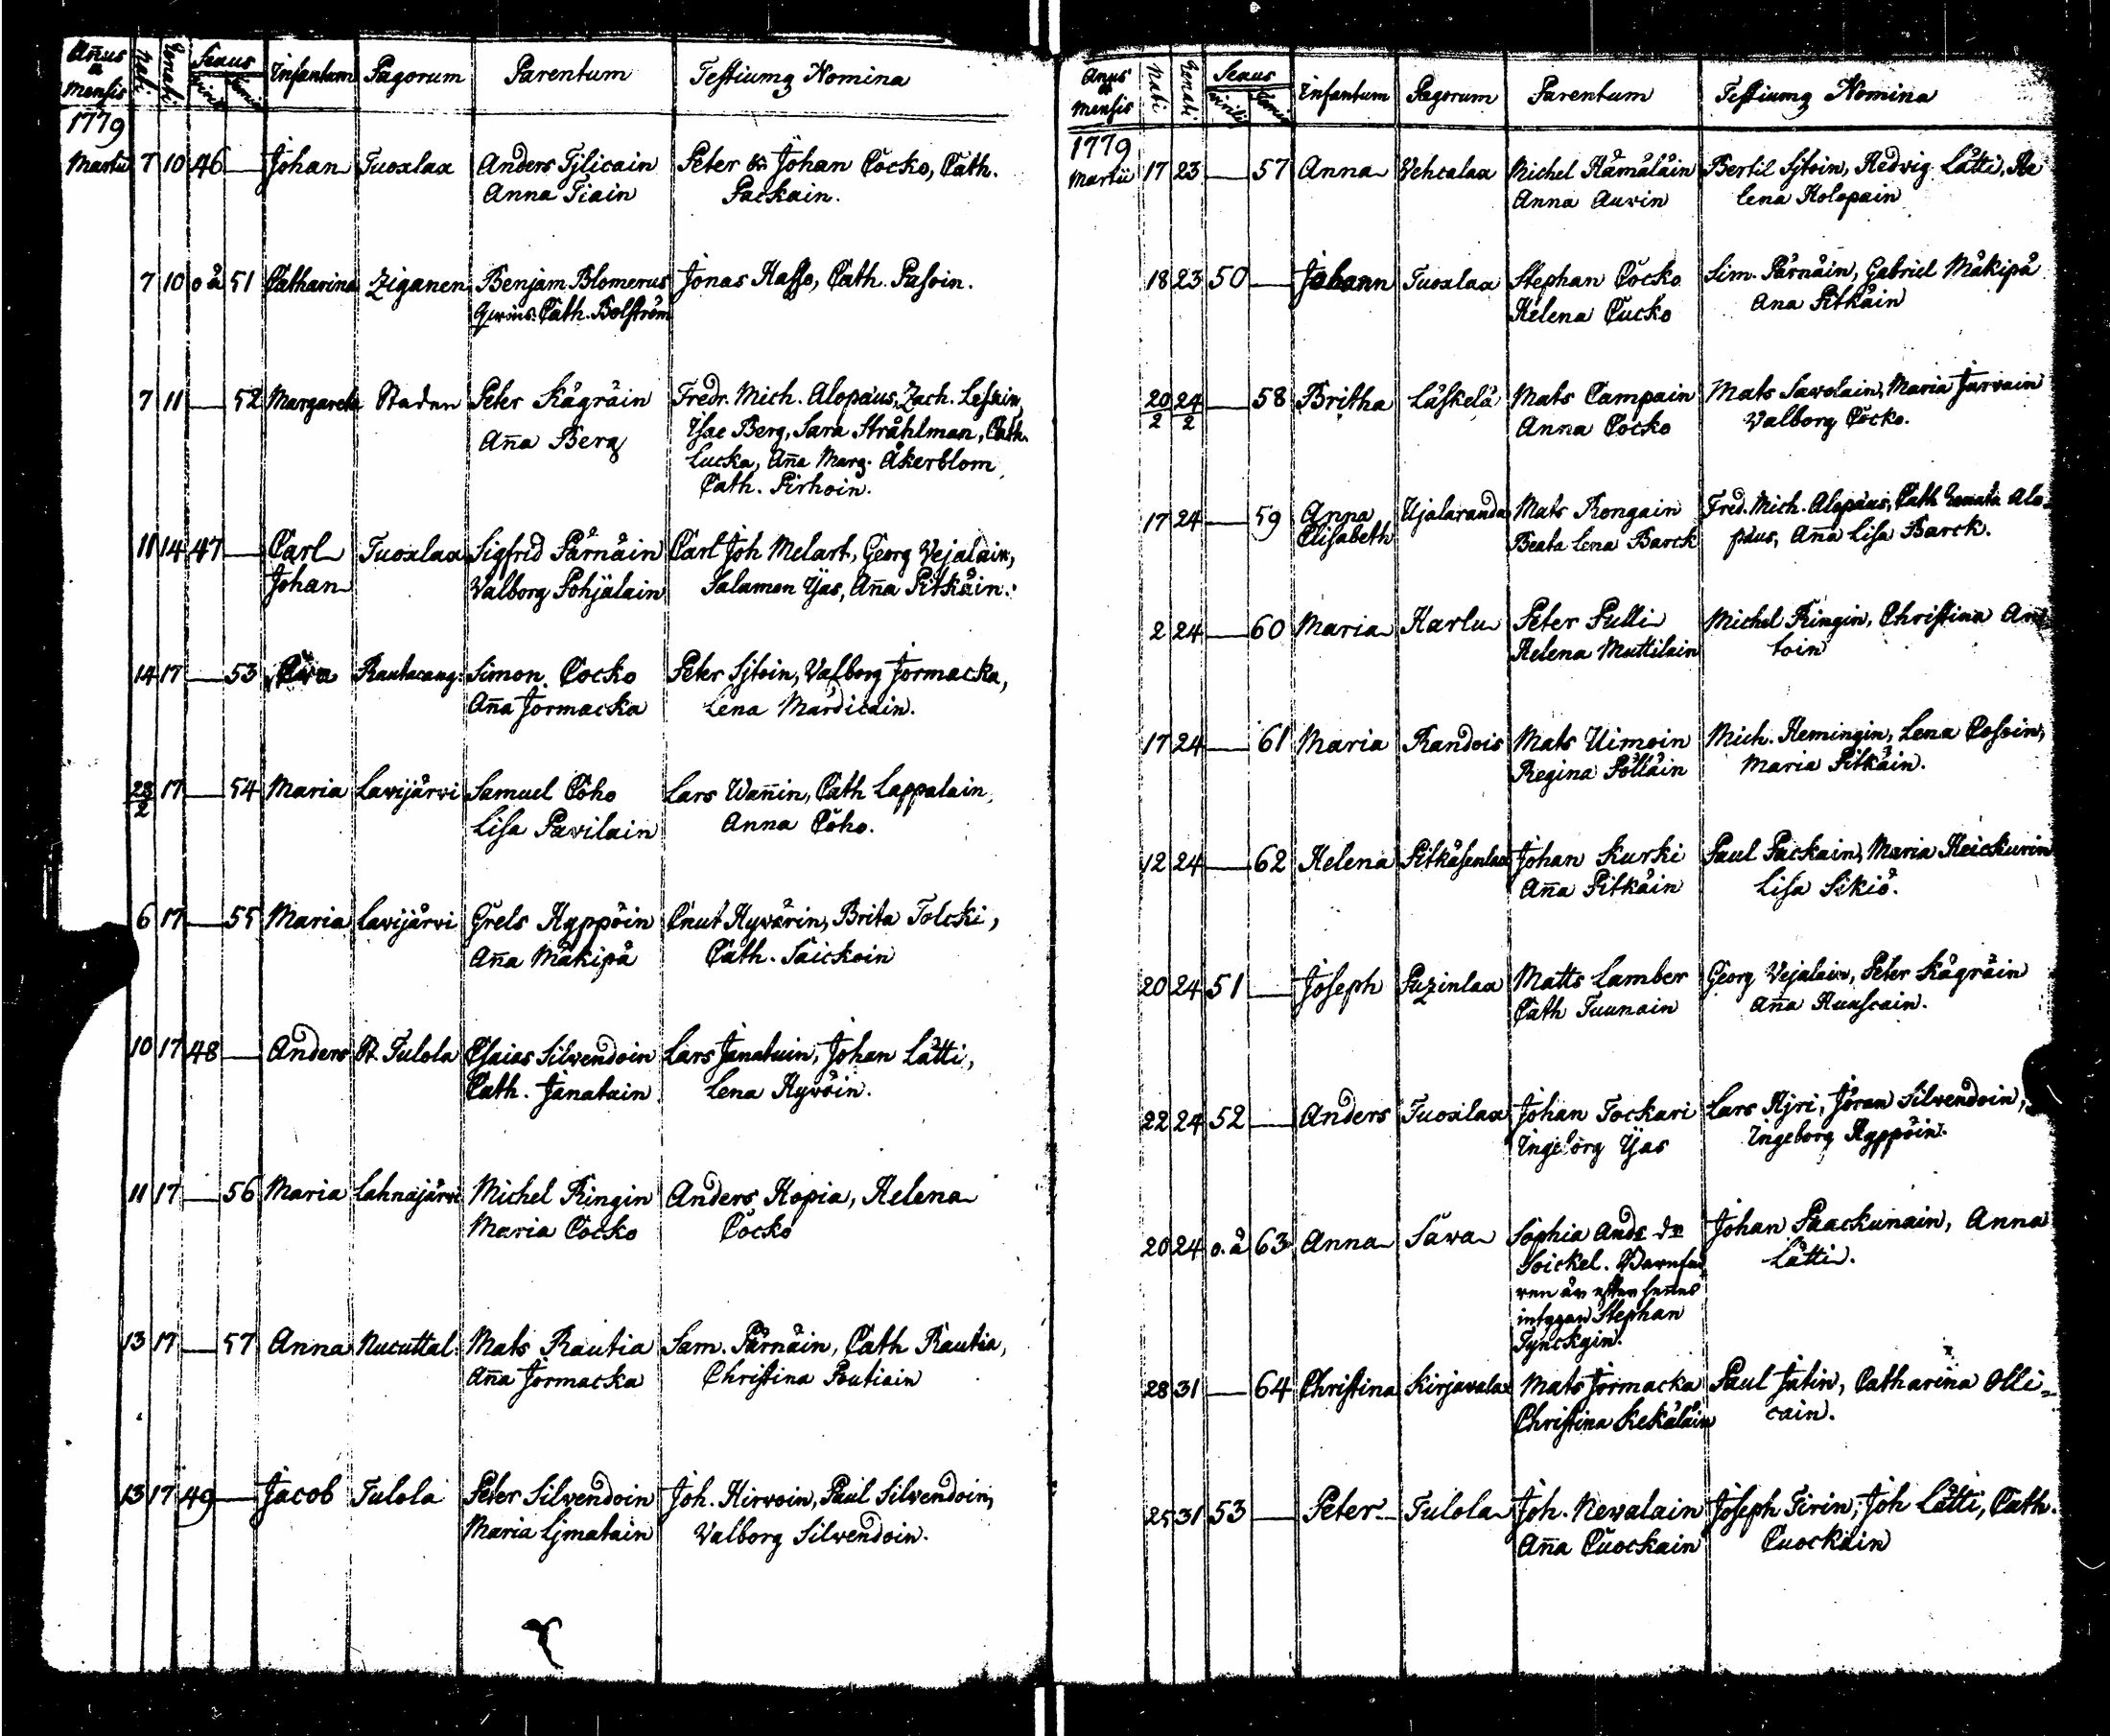 Añus & Mensis Nati Renati Sexus Virilis Femin Infantum Pagorum Parentum Testiumq Nomina
1779
Martii 7 10 46 — Johan Tuoxlax Anders Tylicain Peter & Johan Cocko, Cath.
Anna Tiain Packain.
7 10 o ä 51 Catharina Ziganen Benjam. Blomerus Jonas Hasso, Cath. Pasoin.
Cath. Bolström
7 11 — 52 Margareta Staden Peter Kägräin Fredr. Mich. Alopæus, Zach. Leskin,
Aña Berg Isac Berg, Sara Stråhlman, Cath.
Lucka, Aña Marg. Åkerblom
Cath. Pirhoin.
11 14 47 — Carl Tuoxlax Sigfrid Pärnäin Carl Joh Melart, Georg Vejalain,
Johan Valborg Pohjalain Salamon Yjas, Aña Pitkäin.
14 17 — 53 Eva Rautacang: Simon Cocko Peter Sjtoin, Valborg Jormacka,
Aña Jormacka Lena Mardicain.
28/2 17 — 54 Maria Lavijärvi Samuel Coho Lars Wañin, Cath Lappalain,
Lisa Pavilain Anna Coho.
6 17 — 55 Maria Lavijärvi Grels Hyppöin Cnut Hyvärin, Brita Tolcki,
Aña Mäkipä Cath. Saickoin
10 17 48 — Anders St. Tulola Esaias Silvendoin Lars Janatuin, Johan Lätti,
Cath. Janatuin Lena Hyvöin.
11 17 — 56 Maria Lahnajärvi Michel Ringin Anders Hopia, Helena
Maria Cocko Cocko
13 17 — 57 Anna Nucuttal. Mats Rautia Sam. Pärnäin, Cath Rautia,
Aña Jormacka Christina Poutiain
13 17 49 — Jacob Tulola Peter Silvendoin Joh. Hirvoin, Paul Silvendoin,
Maria Ljmatain Valborg Silvendoin.
Añus & Mensis Nati Renati Sexus Virilis Femin Infantum Pagorum Parentum Testiumq Nomina
1779
Martii 17 23 — 57 Anna Vehcalax Michel Hämäläin Bertil Sjtoin, Hedvig Lätti, He
Anna Auvin lena Holopain
18 23 50 — Johann Tuoxlax Stephan Cocko Sim. Pärnäin, Gabriel Mäkipä
Helena Cucko Ana Pitkäin
20/2 24/2 — 58 Britha Läskelä Mats Campain Mats Savolain, Maria Jurvain
Anna Cocko Valborg Cocko.
17 24 — 59 Anna Ujalaranda Mats Rongain Fred. Mich. Alopæus, Cath Renata Alo-
Elisabeth Beata Lena Barck pæus, Aña Lisa Barck.
2 24 — 60 Maria Harlu Peter Pulli Michel Ringin, Christina An
Helena Muttilain toin
17 24 — 61 Maria Randois Mats Uimoin Mich. Hemingin, Lena Cosoin,
Regina Pölläin Maria Pitkäin.
12 24 — 62 Helena Pitkäsenlax Johan Kurki Paul Packain, Maria Heickurin
Aña Pitkäin Lisa Sikiö.
20 24 51 — Joseph Puzinlax Matts Lamber Georg Vejalain, Peter Kägräin
Cath Tuunain Aña Huuscain.
22 24 52 — Anders Tuoxlax Johan Tockari Lars Hjri, Jöran Silvendoin,
Ingeborg Yjas Ingeborg Hyppöin.
20 24 o. ä 63 Anna Sawa Sophia Ands dr Johan Paackunain, Anna
Soickel. Barnfa Lätti.
ren är efter hennes
intygan Stephan
Tynckyin.
28 31 — 64 Christina Kirjavalax Mats Jormacka Paul Jatin, Catharina Olli-
Christina Kekäläin cain.
25 31 53 — Peter Tulola Joh. Newalain Joseph Tirin, Joh Lätti, Cath.
Aña Cuockain Cuockain